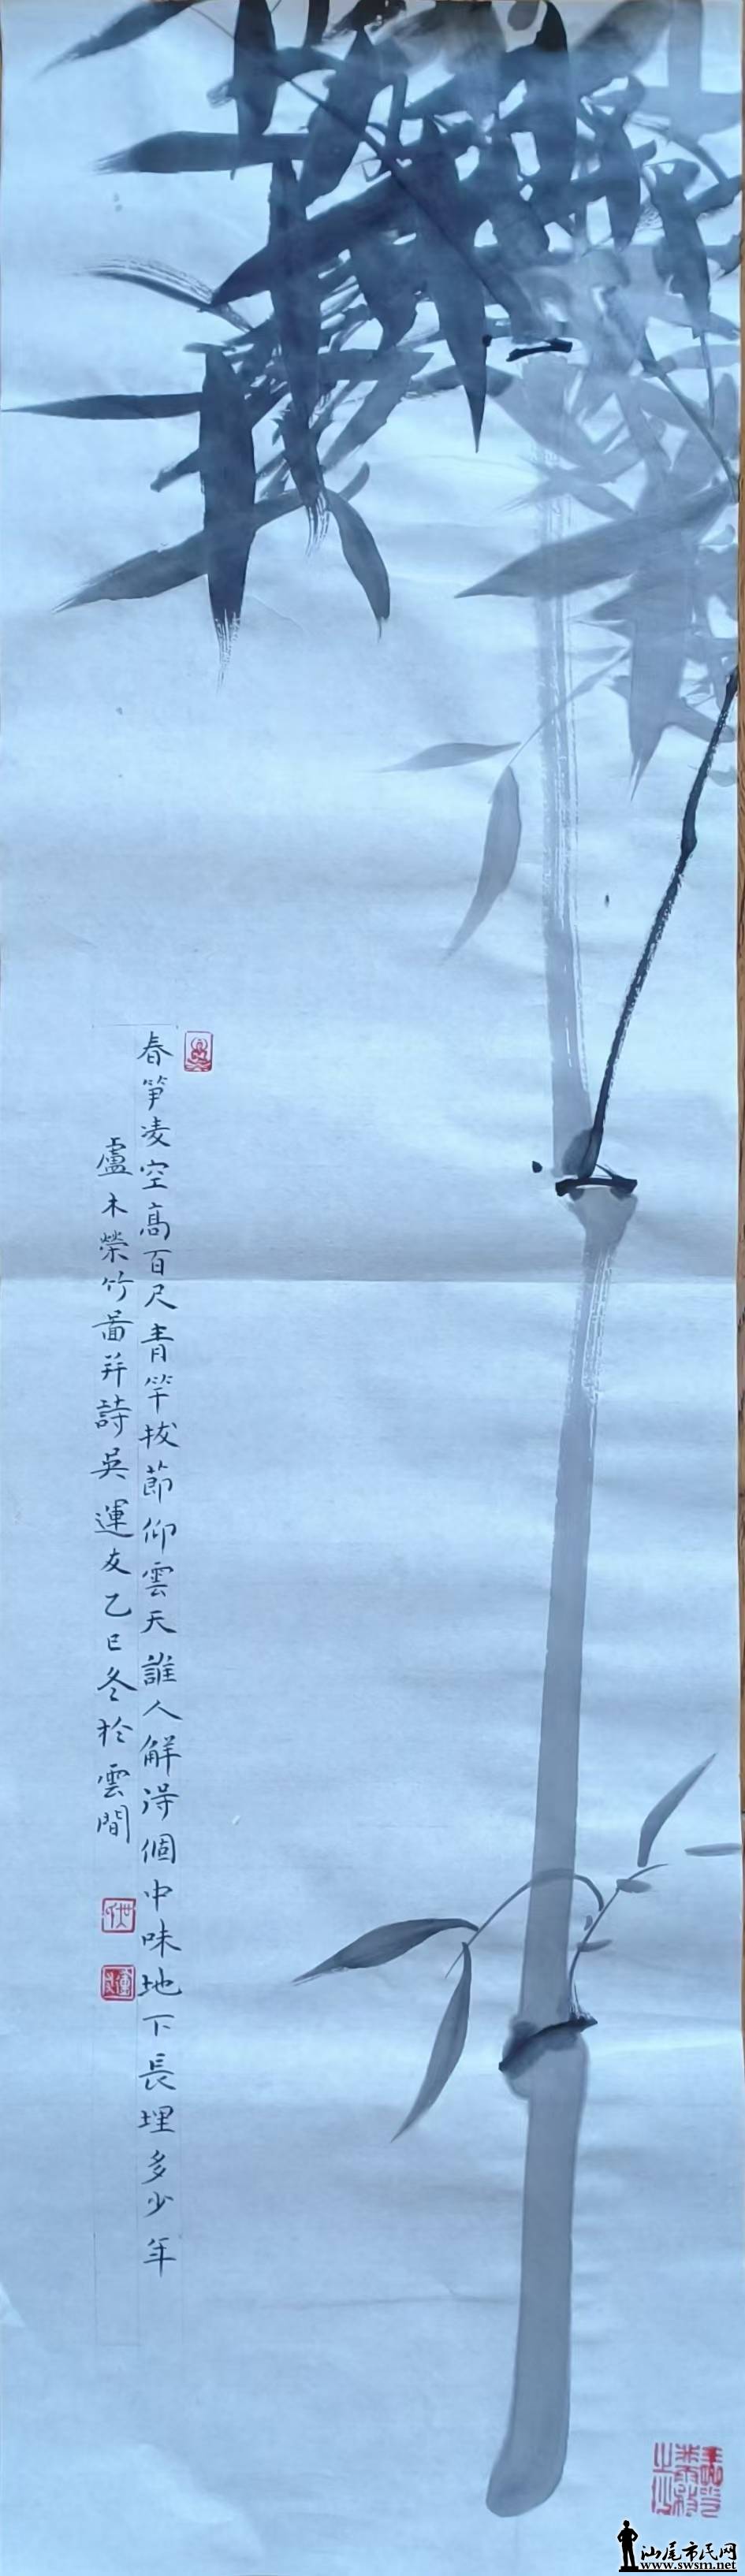 春筍凌空高百尺青竿拔節仰雲天誰人解淂個中味地下長埋多少年
盧木榮竹畵并詩吳運友乙巳冬於雲間
汕尾市民网
www.swsm.net